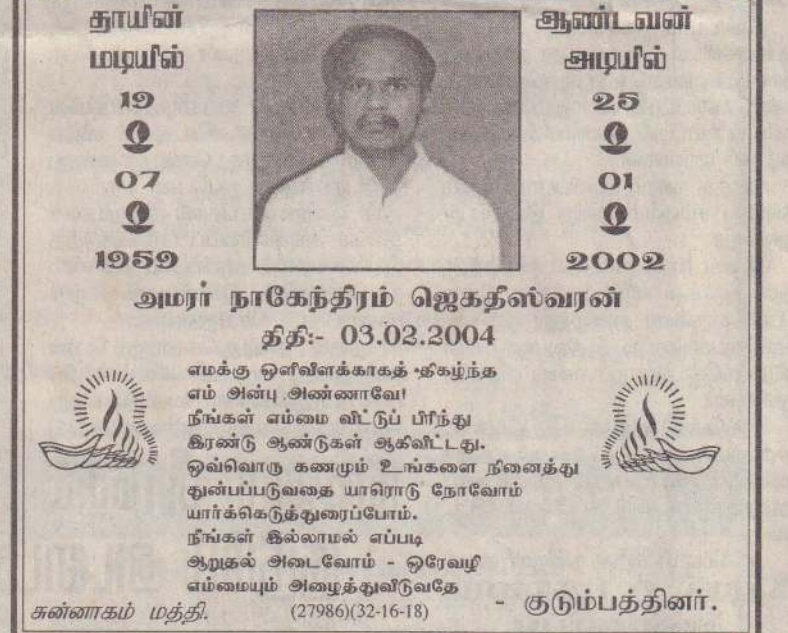 தாயின்
மடியில்
19
07
1959
ஆண்டவன்
அடியில்
25
01
2002
அமரர் நாகேந்திரம் ஜெகதீஸ்வரன்
திதி:- 03.02.2004
எமக்கு ஒளிவிளக்காகத் திகழ்ந்த
எம் அன்பு அண்ணாவே!
நீங்கள் எம்மை விட்டுப் பிரிந்து
இரண்டு ஆண்டுகள் ஆகிவிட்டது.
ஒவ்வொரு கணமும் உங்களை நினைத்து
துன்பப்படுவதை யாரொடு நோவோம்
யார்க்கெடுத்துரைப்போம்.
நீங்கள் இல்லாமல் எப்படி
ஆறுதல் அடைவோம் - ஒரேவழி
எம்மையும் அழைத்துவிடுவதே
- குடும்பத்தினர்.
சுன்னாகம் மத்தி. (27986)(32-16-18)